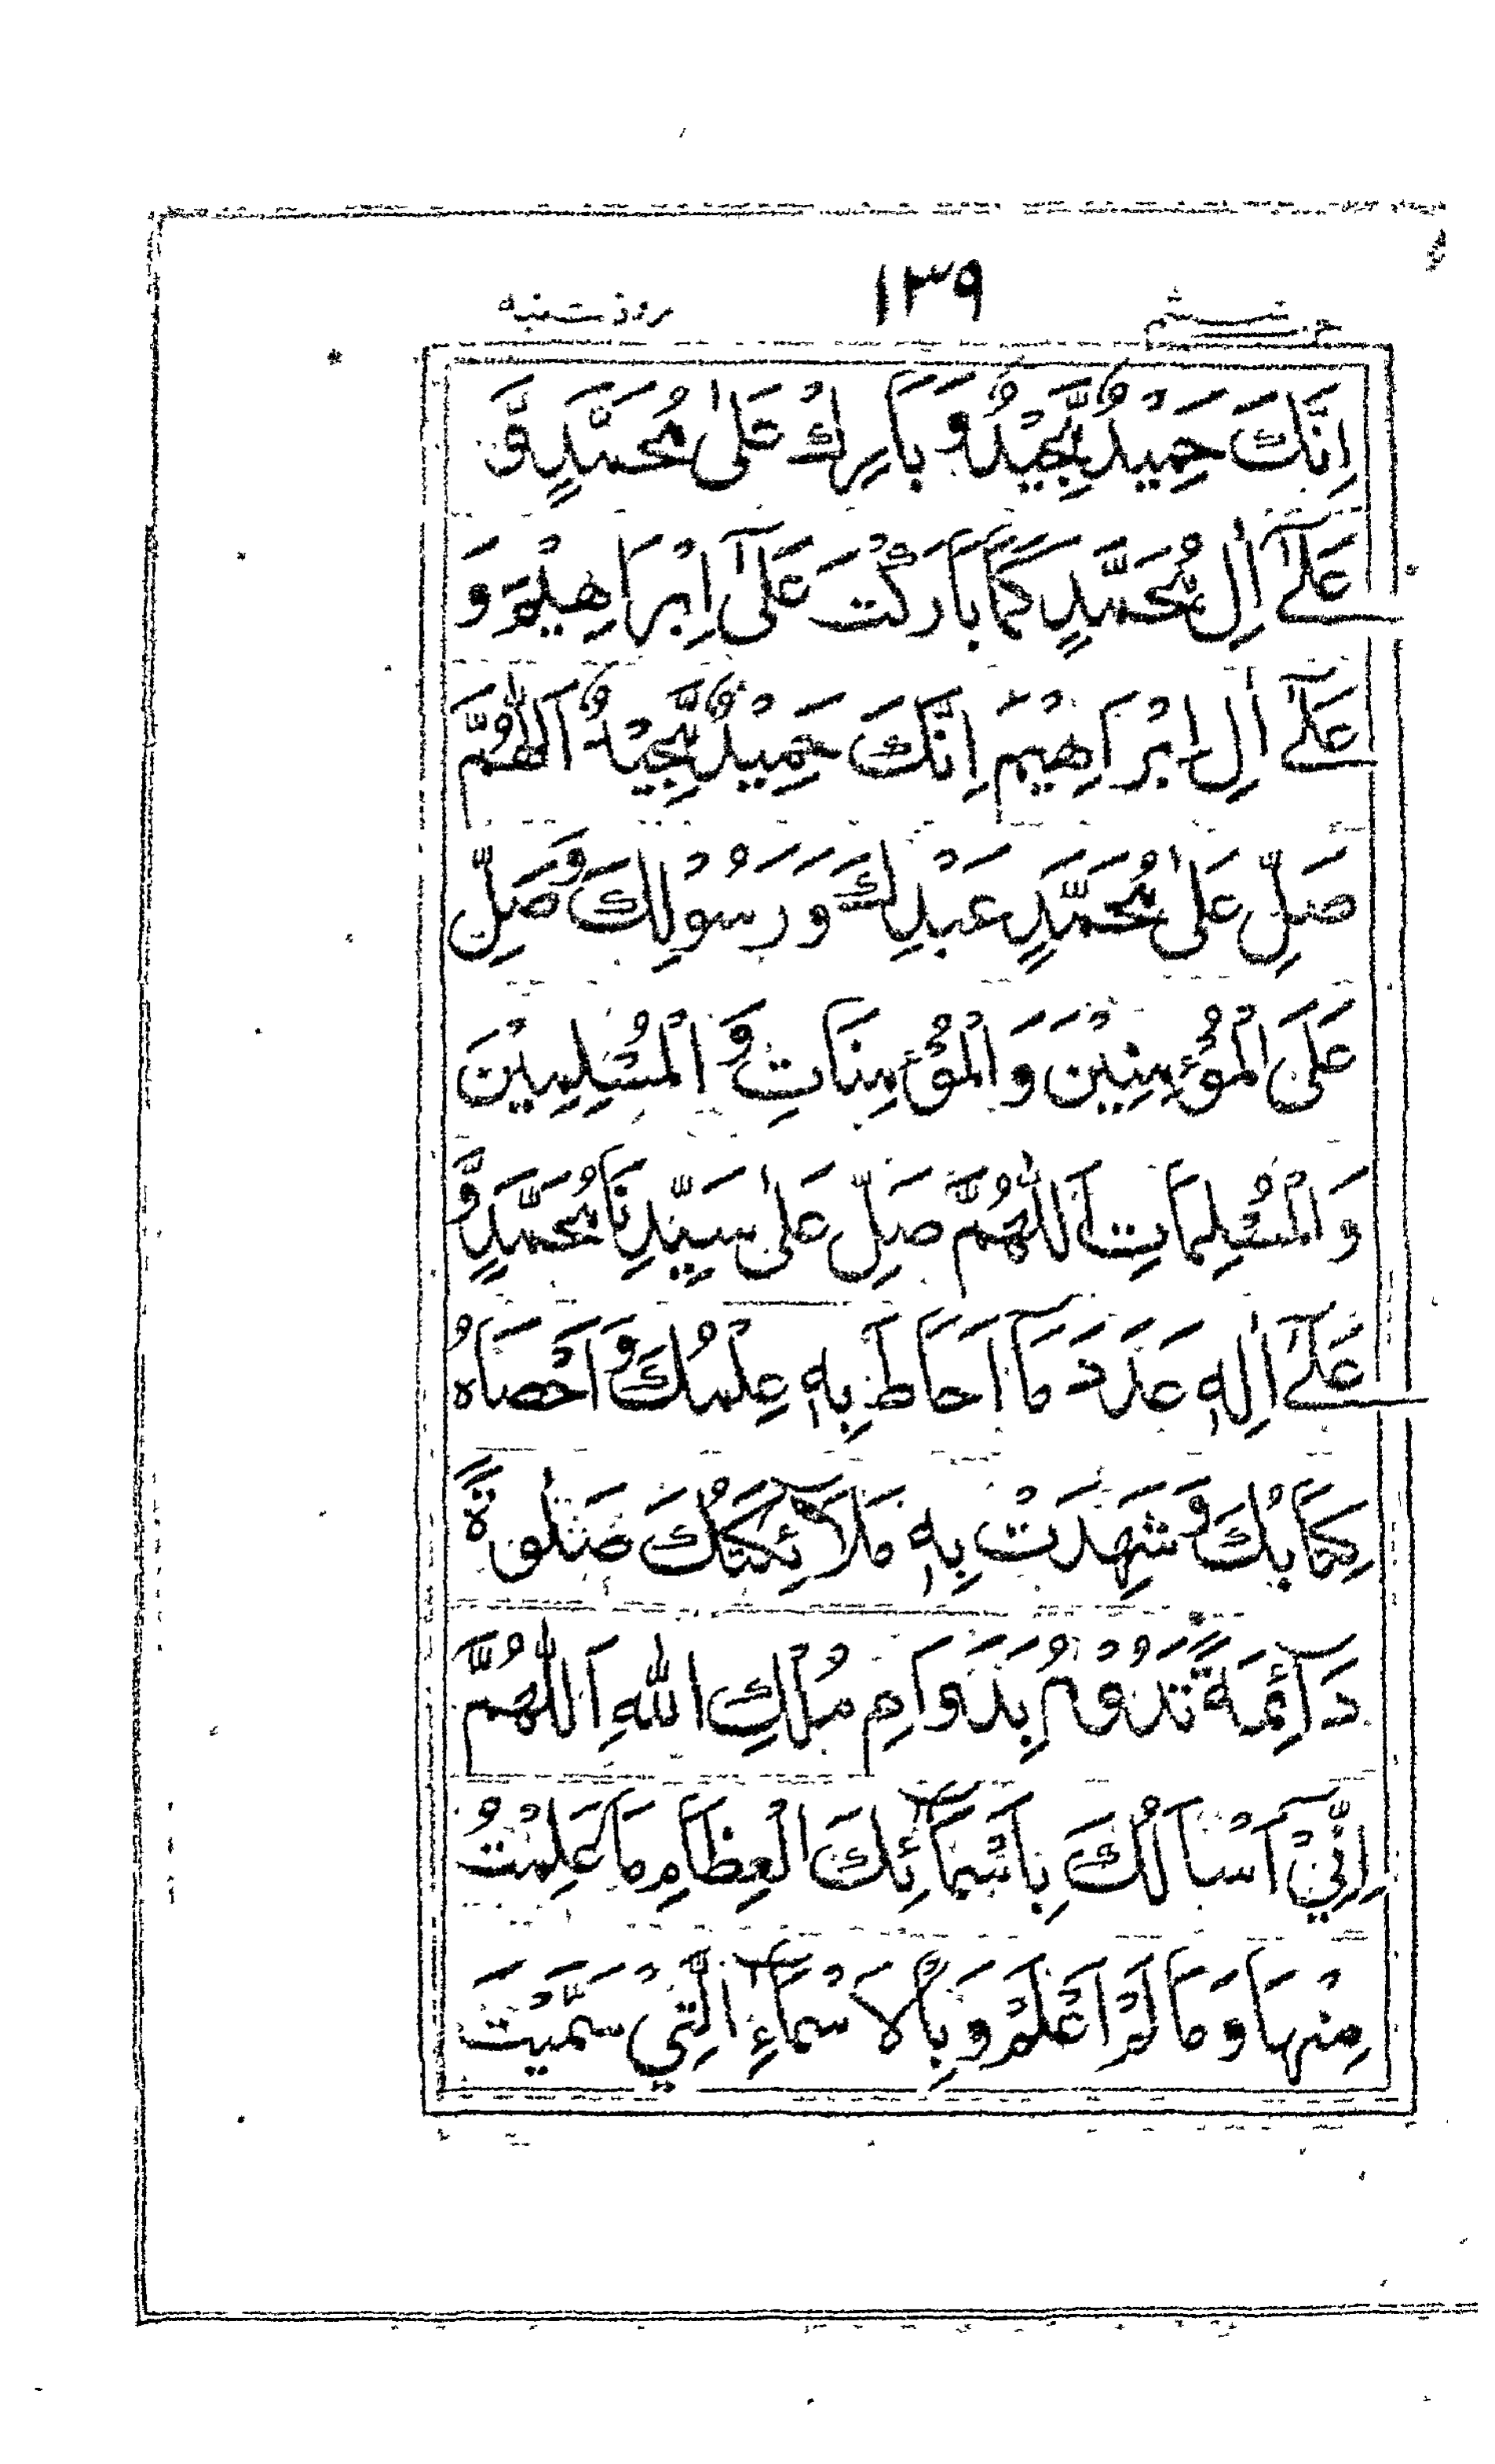 ۱۳۹
اِنَّكَ حَمِيْدٌ مَّجِيْدٌ وَّ بَارِكْ عَلٰى مُحَمَّدٍ وَّ
عَلٰٓى اٰلِ مُحَمَّدٍ كَمَا بَارَكْتَ عَلٰٓى اِبْرَاهِيْمَ وَ
عَلٰٓى اٰلِ اِبْرَاهِيْمَ اِنَّكَ حَمِيْدٌ مَّجِيْدٌ اَللّٰهُمَّ
صَلِّ عَلٰى مُحَمَّدٍ عَبْدِكَ وَ رَسُوْلِكَ وَ صَلِّ
عَلَى الْمُؤْمِنِيْنَ وَ الْمُؤْمِنَاتِ وَ الْمُسْلِمِيْنَ
وَ الْمُسْلِمَاتِ اَللّٰهُمَّ صَلِّ عَلٰى سَيِّدِنَا مُحَمَّدٍ وَّ
عَلٰٓى اٰلِهٖ عَدَدَ مَآ اَحَاطَ بِهٖ عِلْمُكَ وَ اَحْصَاهُ
كِتَابُكَ وَ شَهِدَتْ بِهٖ مَلَآئِكَتُكَ صَلٰوةً
دَآئِمَةً تَدُوْمُ بِدَوَامِ مُلْكِ اللّٰهِ اَللّٰهُمَّ
اِنِّيْٓ اَسْاَلُكَ بِاَسْمَآئِكَ الْعِظَامِ مَا عَلِمْتُ
مِنْهَا وَ مَا لَمْ اَعْلَمْ وَ بِالْاَسْمَآءِ الَّتِيْ سَمَّيْتَ